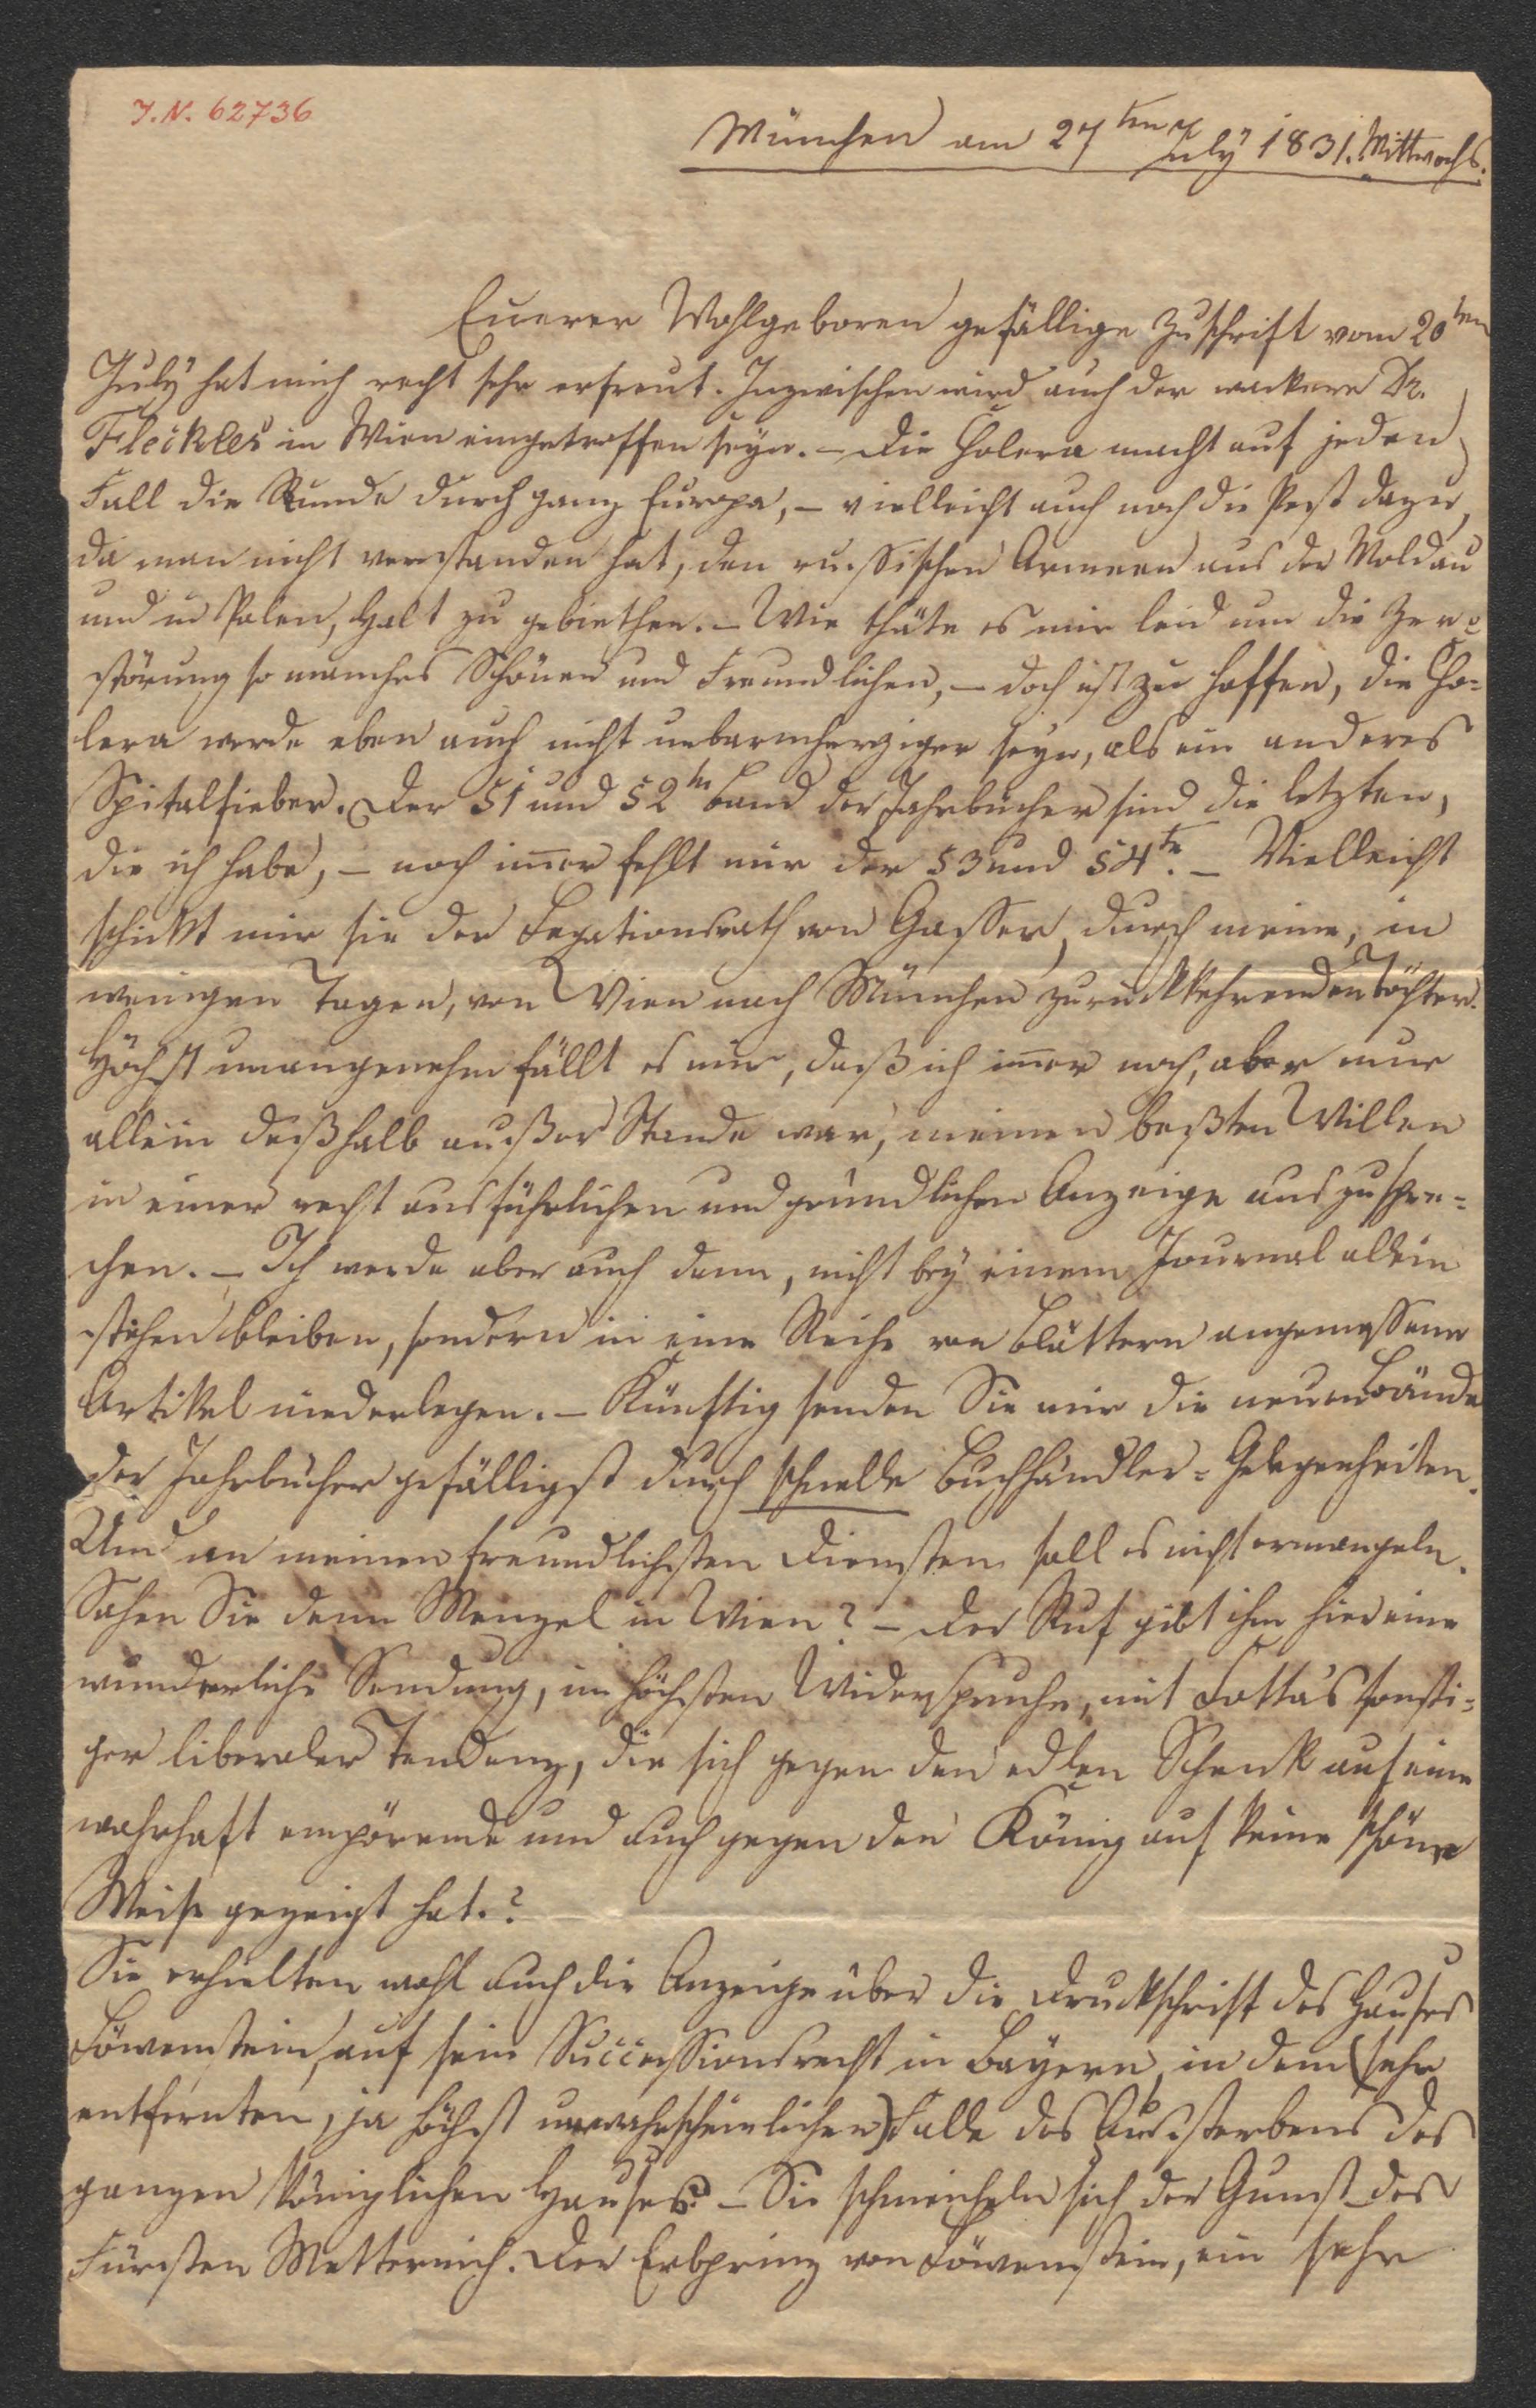 J.N. 62736
München am 27ten July 1831. Mittwochs.
Euerer Wohlgeboren gefällige Zuschrift vom 20ten
July hat mich recht sehr erfreut. Inzwischen wird auch der wackere Dr.
Fleckles in Wien eingetroffen seyn. – Die Cholera macht auf jeden
Fall die Runde durch ganz Europa, – vielleicht auch noch die Pest dazu,
da man nicht verstanden hat, den russischen Armeen aus der Moldau
und in Polen, Halt zu gebiethen. – Wie thäte es mir leid um die Zer=
störung so manches Schönen und Freundlichen, – doch ist zu hoffen, die Cho=
lera werde eben auch nicht unbarmherziger seyn, als ein anderes
Spitalfieber. Der 51 und 52te Band der Jahrbücher sind die letzten,
die ich habe, – noch im̅er fehlt mir der 53 und 54te. – Vielleicht
schickt mir sie der Legationsrath von Gasser, durch meine, in
wenigen Tagen, von Wien nach München zurückkehrenden Töchter.
Höchst unangenehm fällt es mir, daß ich im̅er noch, aber nur
allein deßhalb außer Stande war, meinen beßten Willen
in einer recht ausführlichen und gründlichen Anzeige auszuspre=
chen. – Ich werde aber auch dann, nicht bey einem Journal allein
stehen bleiben, sondern in eine Reihe von Blättern angemessene
Artikel niederlegen. – Künftig senden Sie mir die neuen Bände
der Jahrbücher gefälligst durch schnelle Buchhändler=Gelegenheiten.
Und an meinen freundlichsten Diensten soll es nicht ermangeln.
Sahen Sie denn Menzel in Wien? – Der Ruf gibt ihm hier eine
wunderliche Sendung, im höchsten Widerspruche, mit Cotta's sonsti=
ger liberaler Tendenz, die sich gegen den edlen Schenk auf eine
wahrhaft empörende und auch gegen den König auf keine schöne
Weise gezeigt hat.?
Sie erhielten wohl auch die Anzeige über die Druckschrift des Hauses
Löwenstein, auf sein Successionsrecht in Bayern, in dem (sehr
entfernten, ja höchst unwahrscheinlichen) Falle des Aussterbens des
ganzen königlichen Hauses? – Sie schmeicheln sich der Gunst des
Fürsten Metternich. Der Erbprinz von Löwenstein, ein sehr